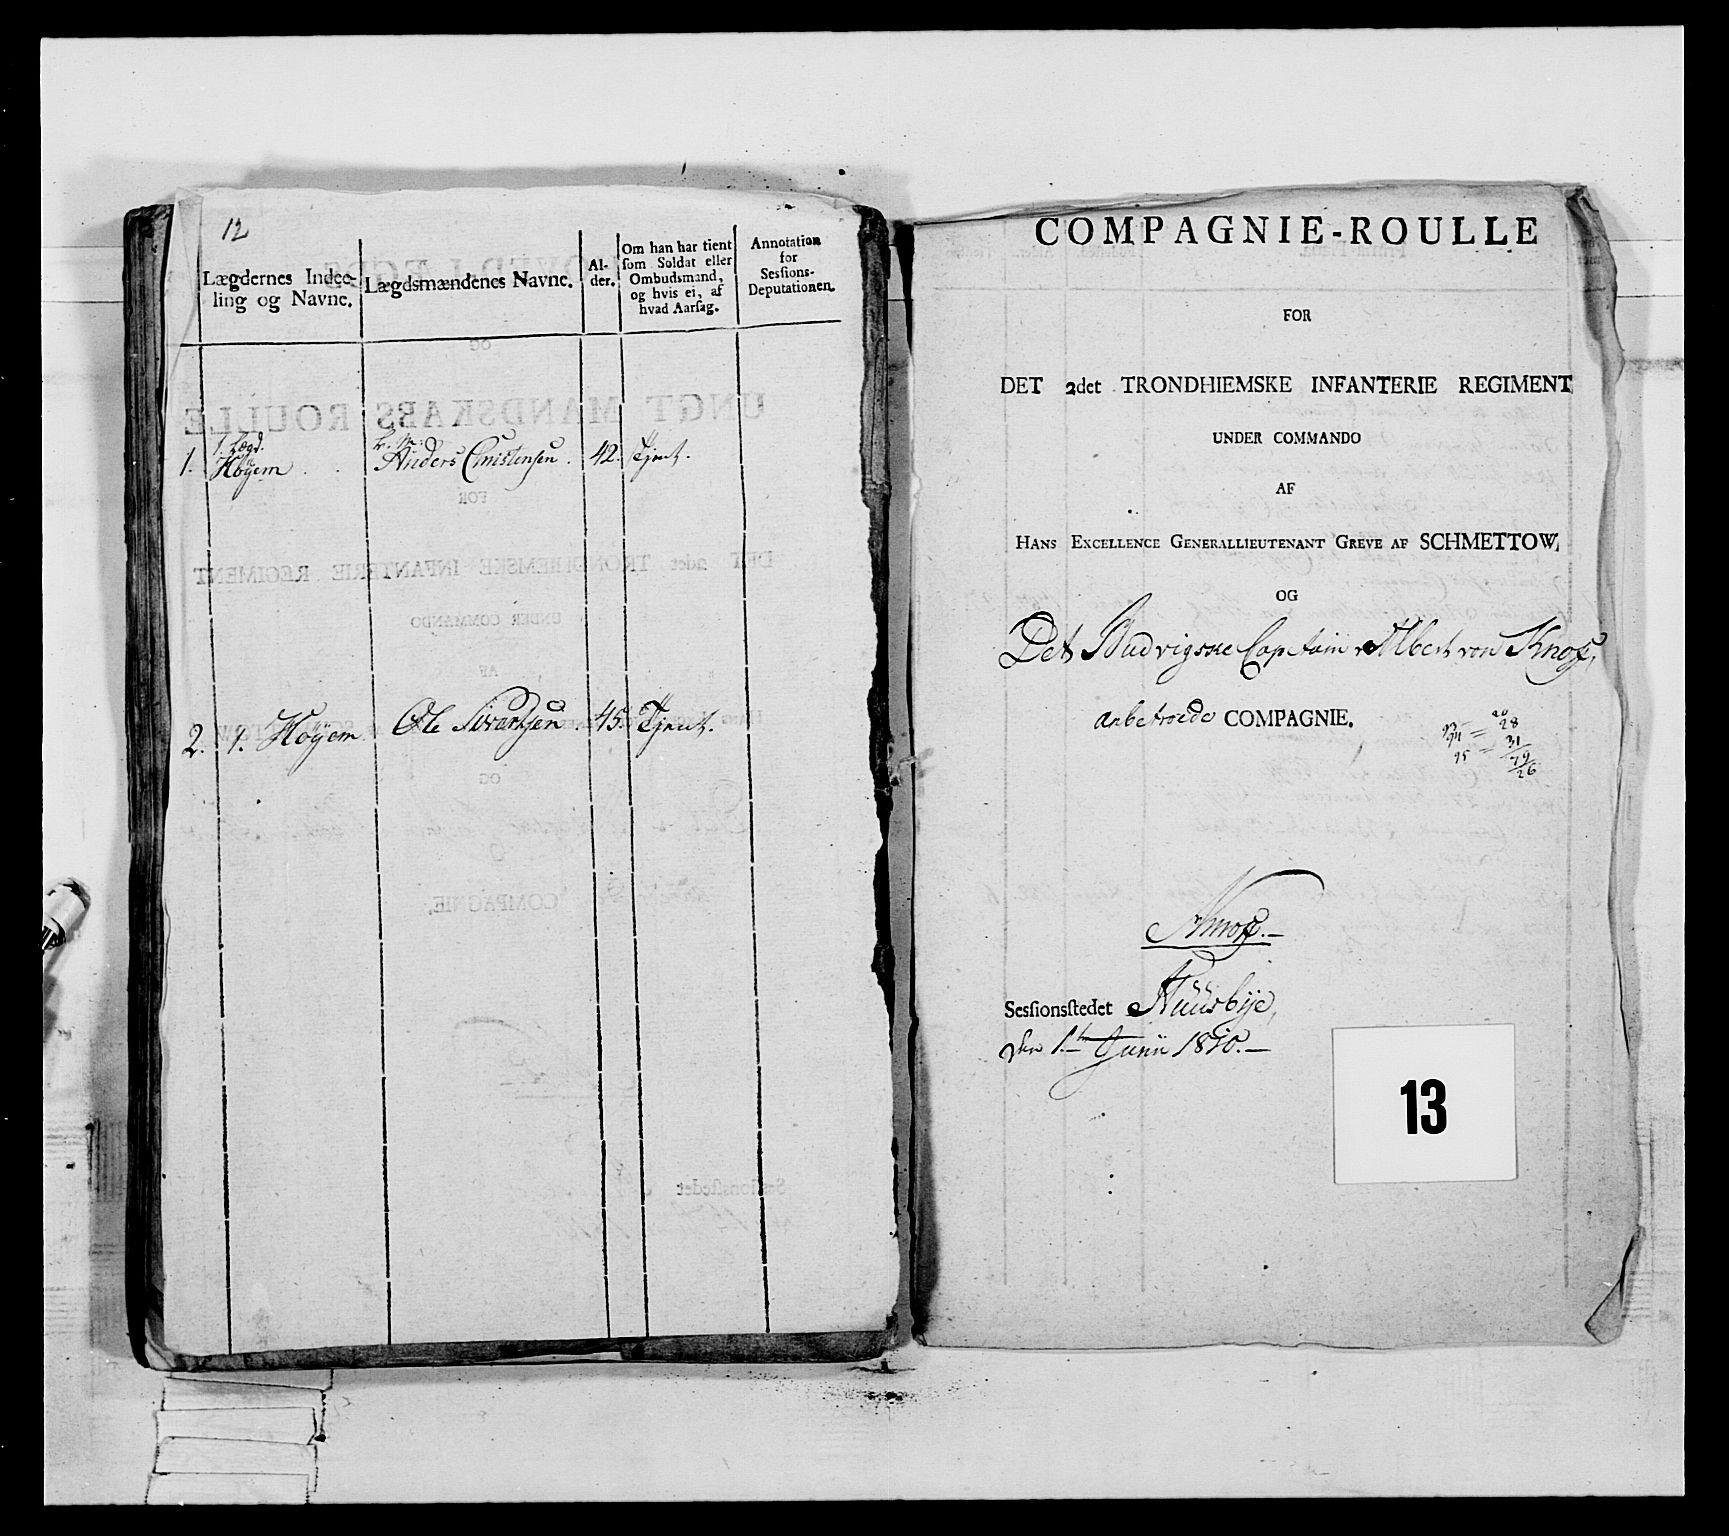 12
Lægdernes Indee-
ling og Navne.
Lægdsmændenes Navne.
Al-
der.
Om han har tient
som Soldat eller
Ombudsmand,
og hvis ei, af
hvad Aarsag.
Annotation
for
Sessions-
Deputationen.
1. Lægd.
1. Høyem . . Anders Christensen . 42. Tjent.
2. 1. Høyem Ole Sivertsen . 45. Tjent.
COMPAGNIE-ROULLE
FOR
DET 2det TRONDHIEMSKE INFANTERIE REGIMENT
UNDER COMMANDO
AF
HANS EXCELLENCE GENERALLIEUTENANT GREVE AF SCHMETTOW,
OG
Det Budvigske Captain Albert von Knoff,
anbetroede COMPAGNIE.
28
31
79
26
Knoff.
Sessionsstedet Huusbye,
den 1te Junii 1810.
13